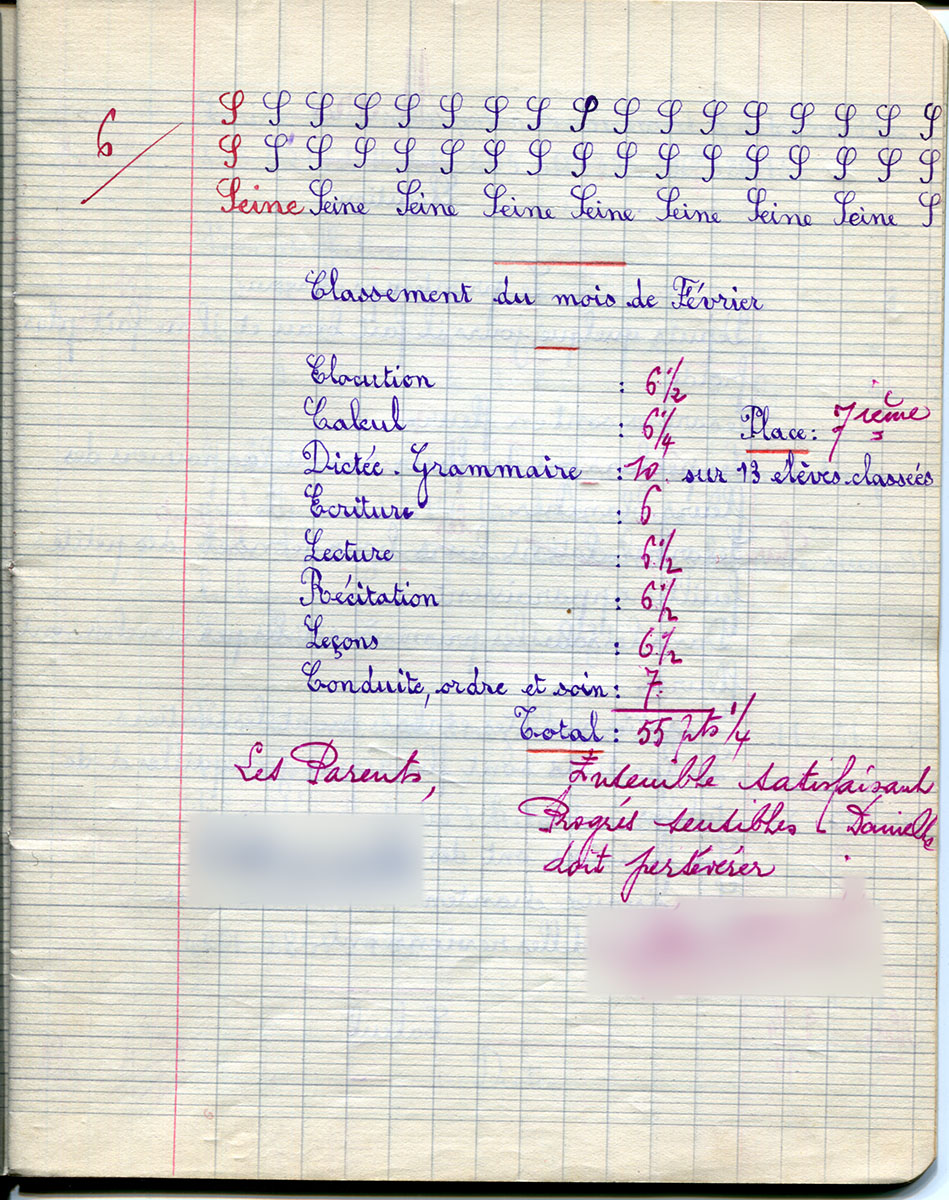 6
S S S S S S S S S S S S S S S S S
S S S S S S S S S S S S S S S S S
Seine Seine Seine Seine Seine Seine Seine Seine S
Classement du mois de Février
Elocution : 6 1/2
Calcul : 6 1/4 Place : 7ième
Dictée - Grammaire : 10 sur 13 elèves classées
Ecriture : 6
Lecture : 6 1/2
Récitation : 6 1/2
Leçons : 6 1/2
Conduite, ordre et soin : 7
Total : 55 pts 1/4
Les Parents, Ensemble satisfaisant
Progrés sensibles. Danielle
doit persévérer